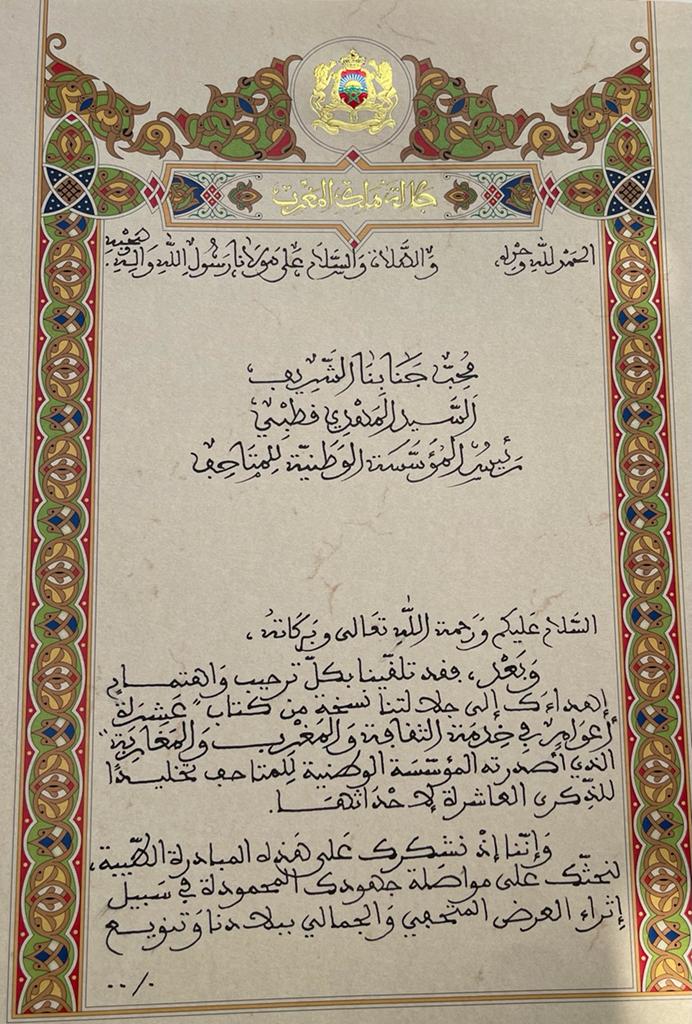 جلالة ملك المغرب
الحمد لله وحده والصلاة والسلام على مولانا رسول الله وآله وصحبه.
محبّ جنابنا الشّريف
السّيد المهدي قطبي
رئيس المؤسّسة الوطنيّة للمتاحف
السّلام عليكم ورحمة الله تعالى وبركاته،
وبعد، فقد تلقّينا بكلّ ترحيب واهتمام
إهداءك إلى جلالتنا نسخة من كتاب "عشرة
أعوام في خدمة الثقافة والمغرب والمغاربة"
الذي أصدرته المؤسّسة الوطنية للمتاحف تخليدًا
للذّكرى العاشرة لإحداثها.
وإنّنا إذ نشكرك على هذه المبادرة الطيّبة،
لنحثّك على مواصلة جهودك المحمودة في سبيل
إثراء العرض المتحفي والجمالي ببلادنا وتنويع
../.